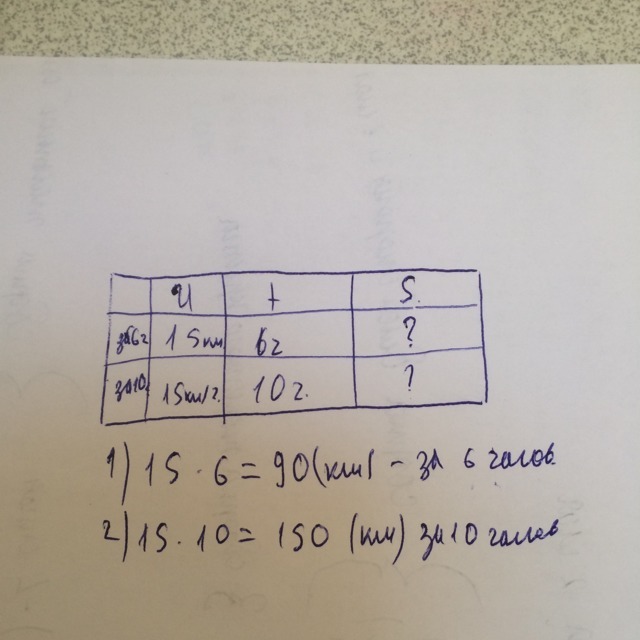 v t S
за 6ч 15км 6ч ?
за 10 15км/ч. 10ч. ?
1) 15 · 6 = 90 (км) - за 6 часов
2) 15 · 10 = 150 (км) за 10 часов